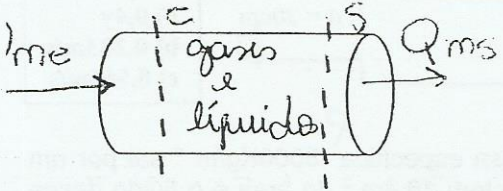 me
e
S
Qms
gases
e
líquidos